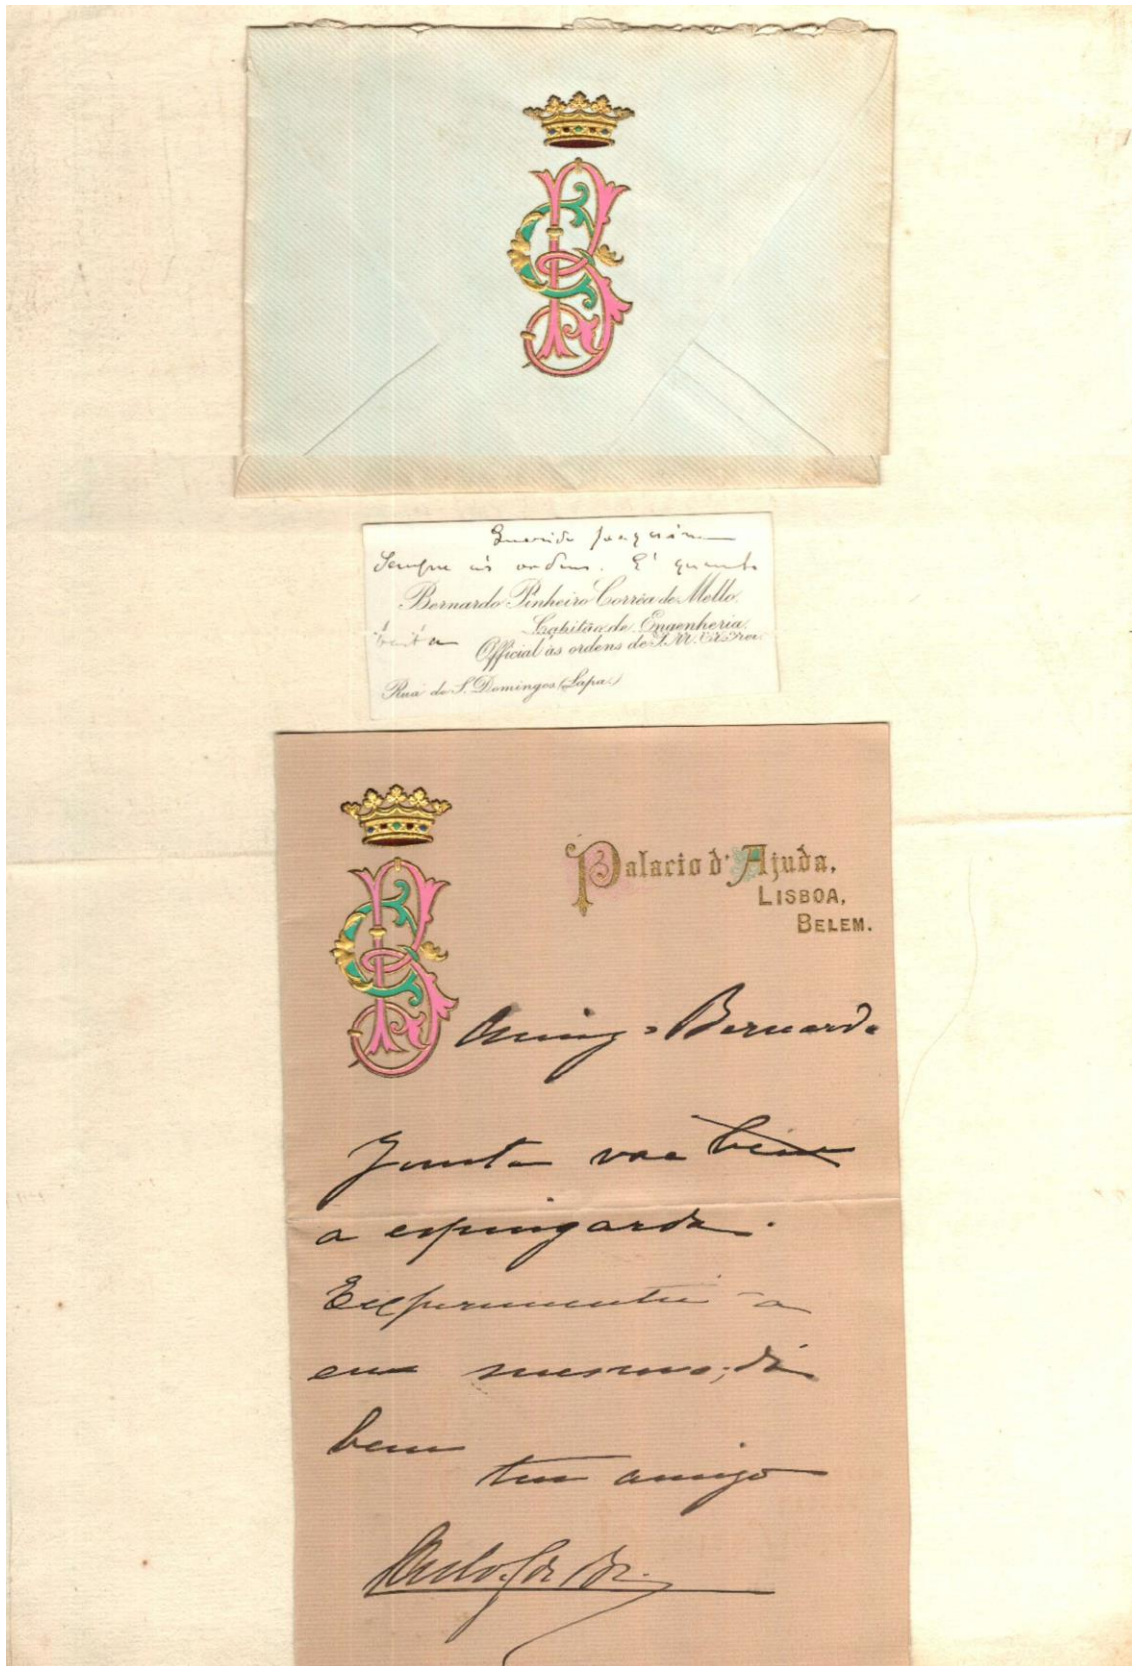 Querido Joaquim
Sempre ás ordens. E' quanto
Bernardo Pinheiro Corrêa de Mello.
Capitão de Engenheria.
Official às ordens de S. M. El-Rei.
Rua de S. Domingos (Lapa.)
Palacio d'Ajuda,
LISBOA,
BELEM.
Amigo Bernardo
Junta vae bem
a espingarda.
Experimentei-a
eu mesmo; dá
bem
teu amigo